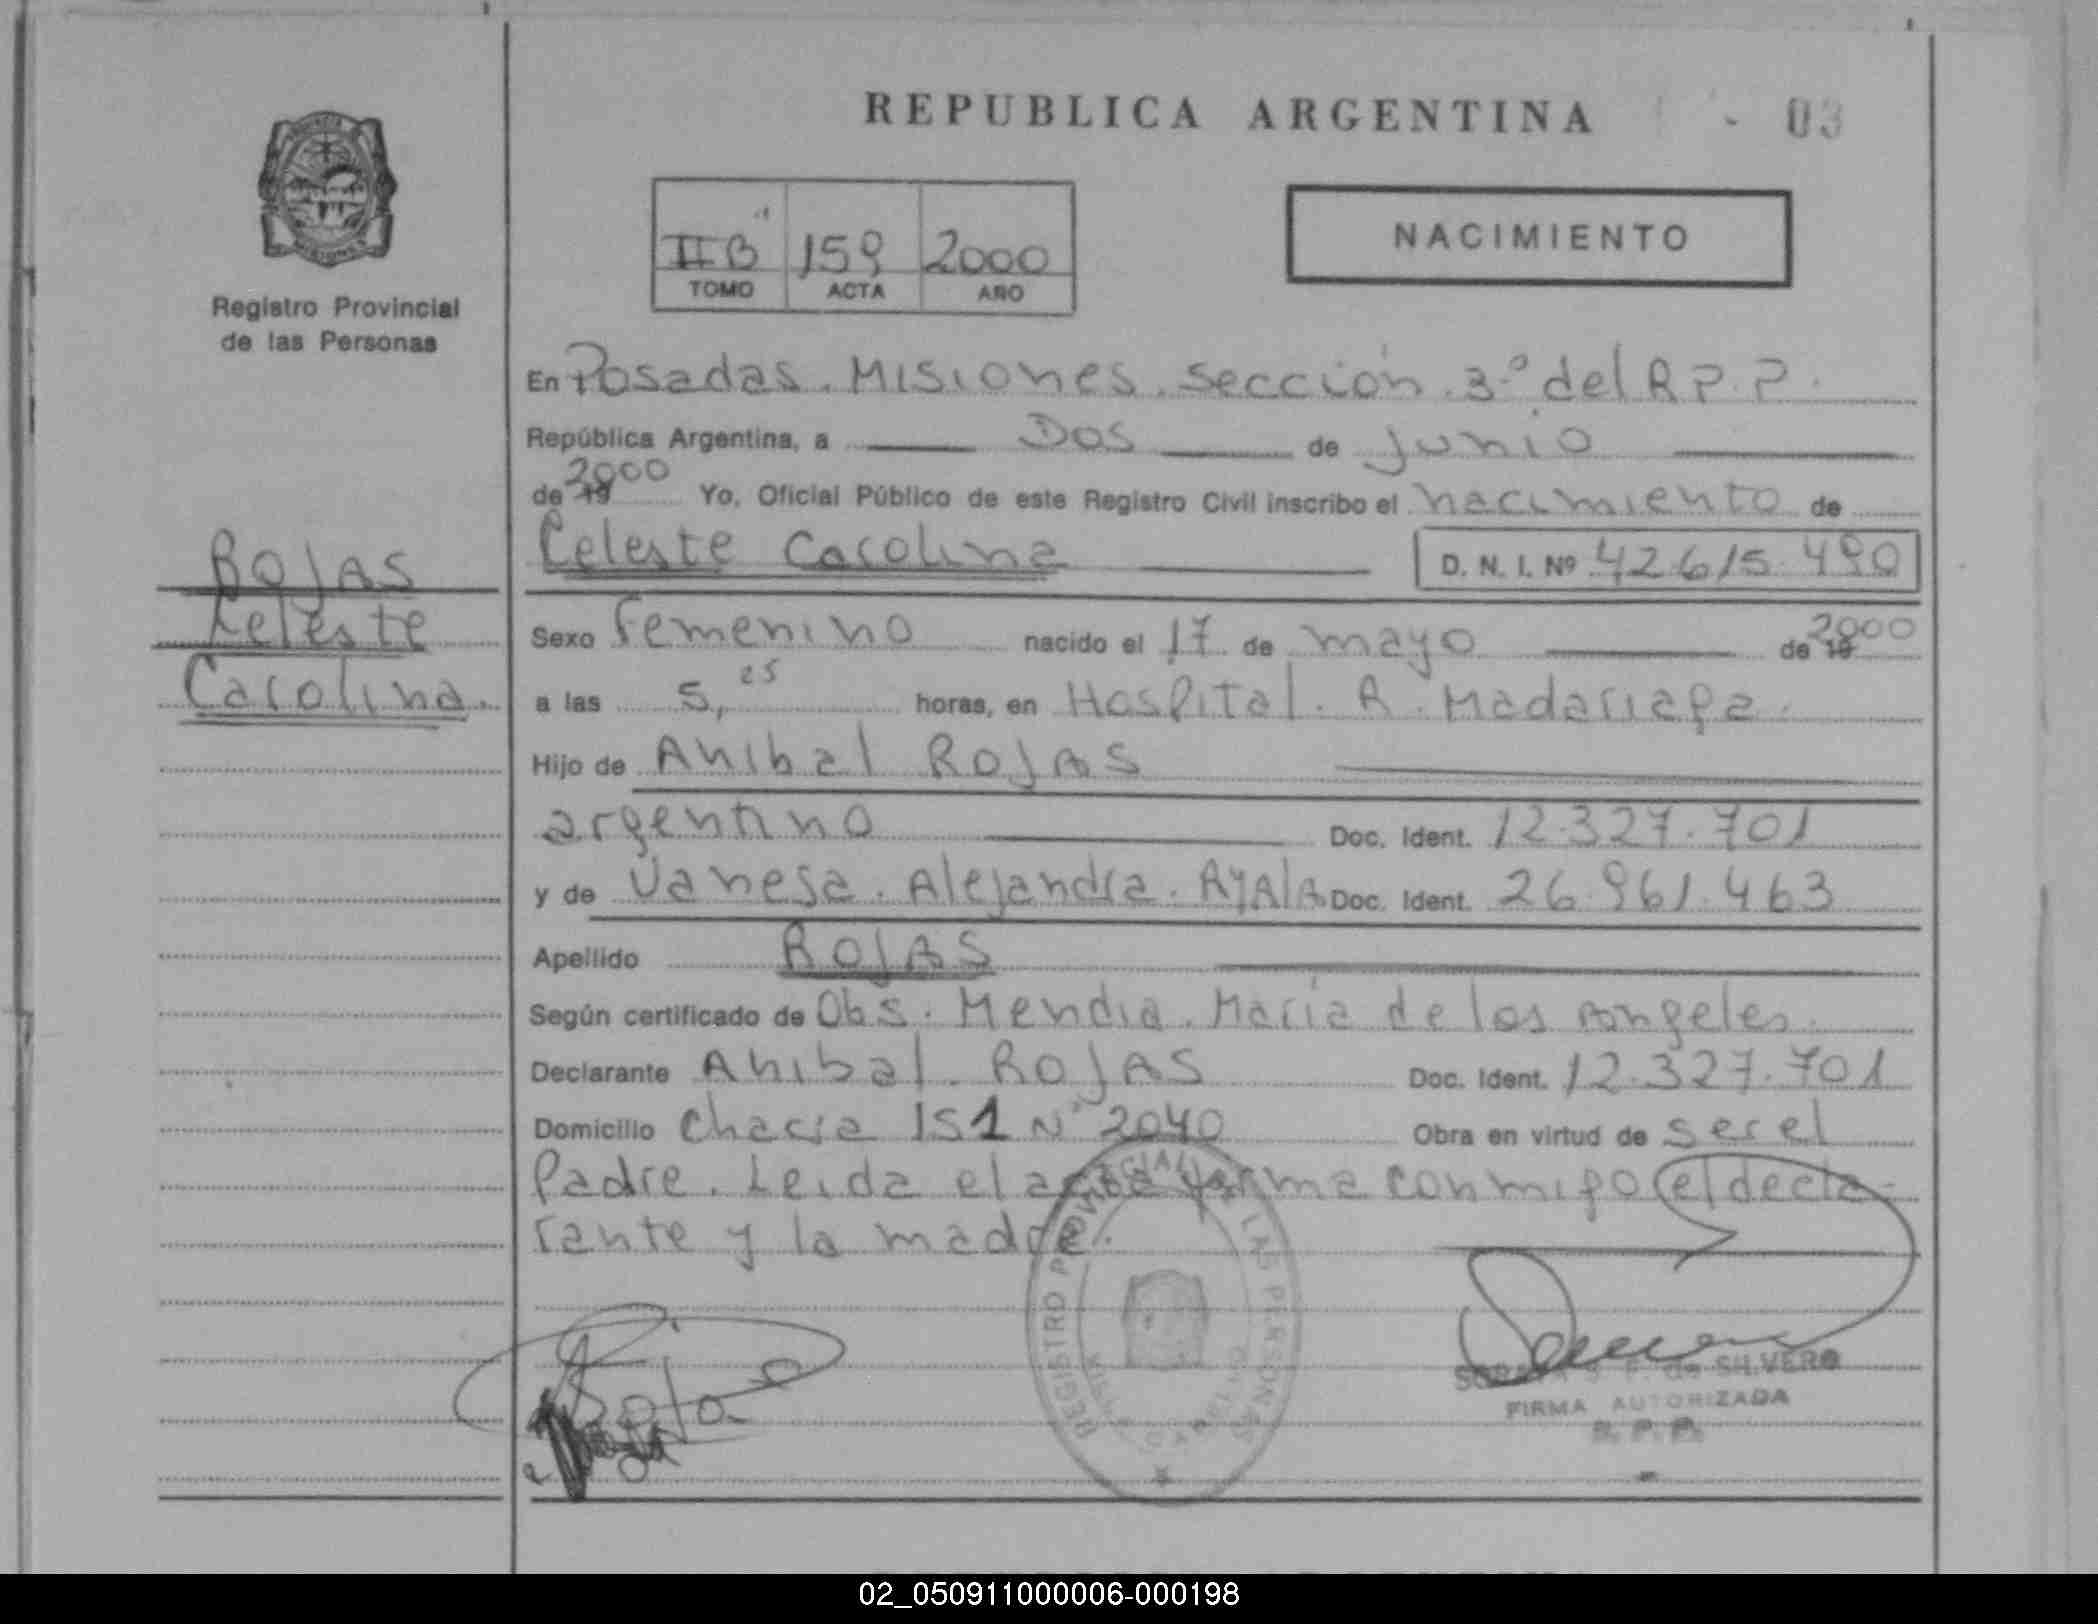 REPUBLICA ARGENTINA - 03
NACIMIENTO
IIB 159 2000
TOMO ACTA AÑO
Registro Provincial
de las Personas
En Posadas. Misiones. sección. 3º del R.P.P.
República Argentina, a Dos de junio
de 19 2000 Yo, Oficial Público de este Registro Civil inscribo el nacimiento de
Celeste Carolina D. N. I. Nº 42.615.490
ROJAS
Celeste
Carolina.
Sexo Femenino nacido el 17 de mayo de 19 2000
a las 5,25 horas, en Hospital. R. Madariaga.
Hijo de Anibal ROJAS
argentino Doc. Ident. 12.327.701
y de Vanesa. Alejandra. AYALA Doc. Ident. 26.961.463
Apellido ROJAS
Según certificado de Obs. Mendia. Maria de los Angeles.
Declarante Anibal. ROJAS Doc. Ident. 12.327.701
Domicilio Chacra 151 Nº 2040 Obra en virtud de ser el
Padre. Leida el acta firma conmigo el decla-
rante y la madre.
REGISTRO PROVINCIAL DE LAS PERSONAS
de SILVERO
FIRMA AUTORIZADA
R. P. P.
02_050911000006-000198